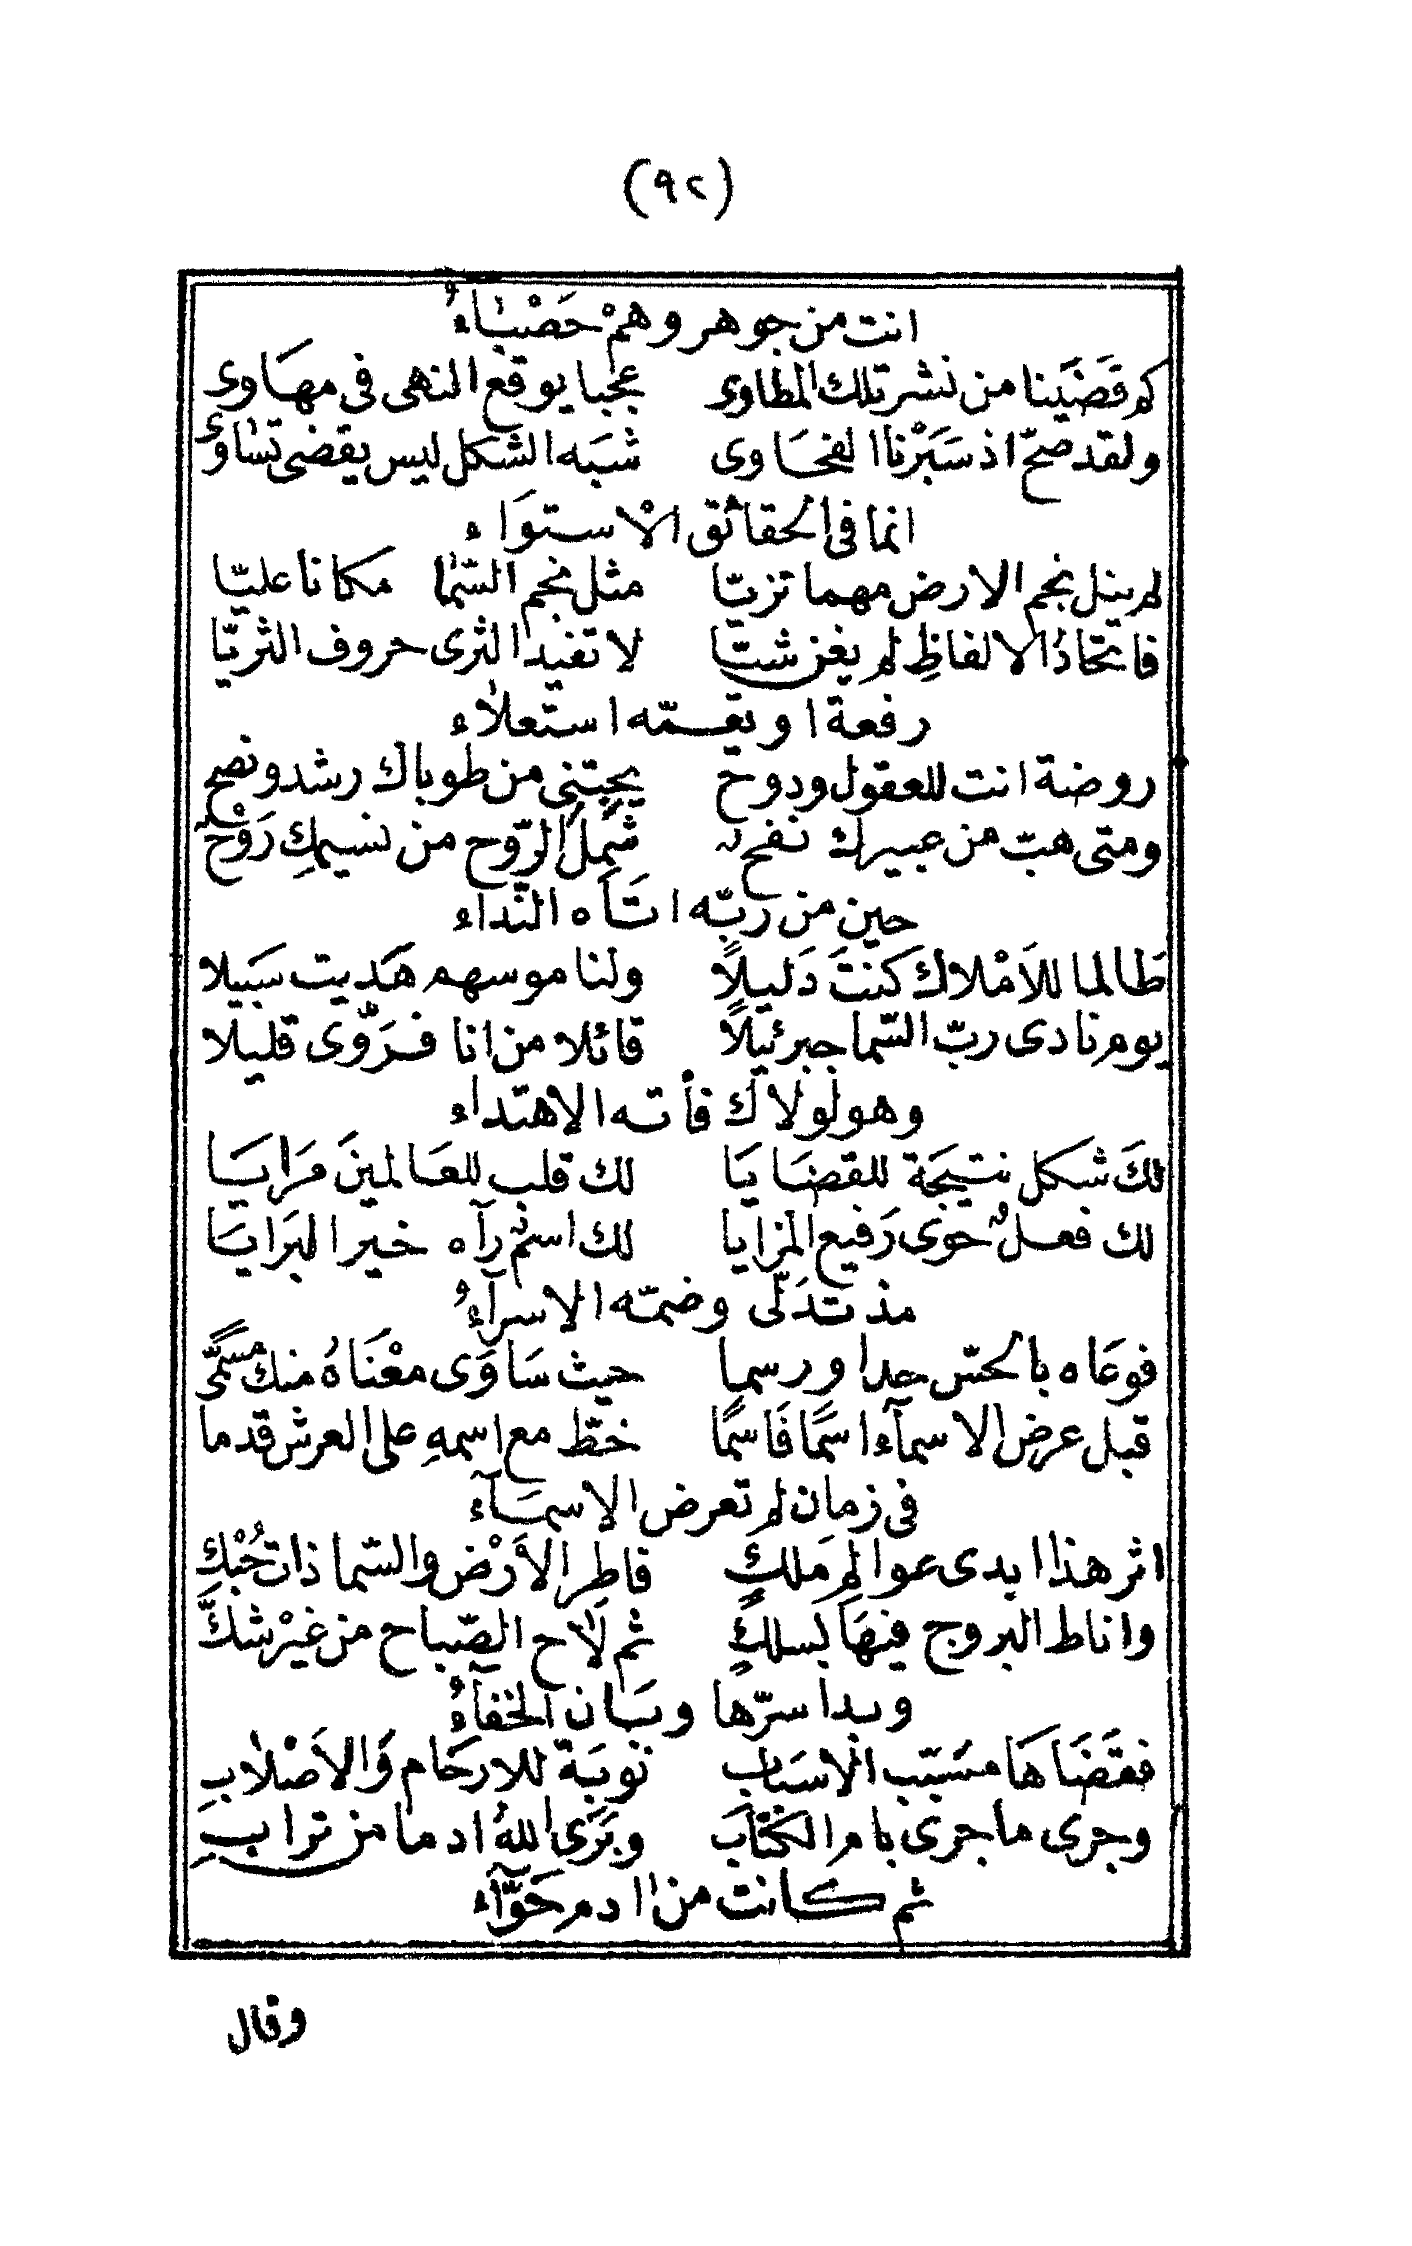 (٩٢)
انت من جوهر وهمْ حَصْبَاءُ
كم قضَينا من نشر تلك المطاوى عجبا يوقع النهى فى مهاوى
ولقد صحّ اذ سَبَرْنا الفحَاوى شبَه الشكل ليس يقضى تساوى
انما فى الحقائق الاستوَاء
لم ينل نجم الارض مهما تزيّا مثل نجم السّما مكانا عليّا
فاتحاد الالفاظِ لم يغن شتّا لا تفيد الثرى حروف الثريّا
رفعة او يعمّه استعلاء
روضة انت للعقول ودوح يجتنى من طوباك رشد ونصح
ومتى هبّ من عبيرك نفح شمِل الرّوح من نسيمكِ رَوْح
حين من ربّه اتَاه النّداء
طَالما للاَمْلاك كنتَ دَليلًا ولنا موسهم هَديت سَبيلا
يوم نادى ربّ السّما جبرئيلًا قائلا من انا فرَوّى قليلا
وهو لولاك فأته الاهتداء
لكَ شكل نتيجَة للقضَايَا لك قلب للعَالمينَ مَرايَا
لك فعلٌ حوى رَفيع المزايا لك اسمٌ رآه خير البَرايَا
مذ تدَلّى وضمّه الاسرآءُ
فوعَاه بالحسّ حدا ورسما حيث سَاوَى معْنَاهُ منك مسَمًّى
قبل عرض الاسمآء اسمًا فَاسمًا خطّ مع اسمهِ على العرش قدما
فى زمان لم تعرض الاسمَآء
اثر هذا ابدى عوالم مَلكٍ فاطر الاَرْض والسّما ذات حُبْكٍ
واناط البروج فيهَا بسلكٍ ثم لَاح الصّباح من غيْر شكٍّ
وبدا سرّها وبَان الخفآءُ
فقضَاهَا مسَبّب الاسبَاب نوبَة للارحَام وَالاَصْلاب
وجرى ماجرى بام الكتَاب وبَرَى اللهُ ادما من تراب
ثم كانت من اادم حَوّآء
وقال